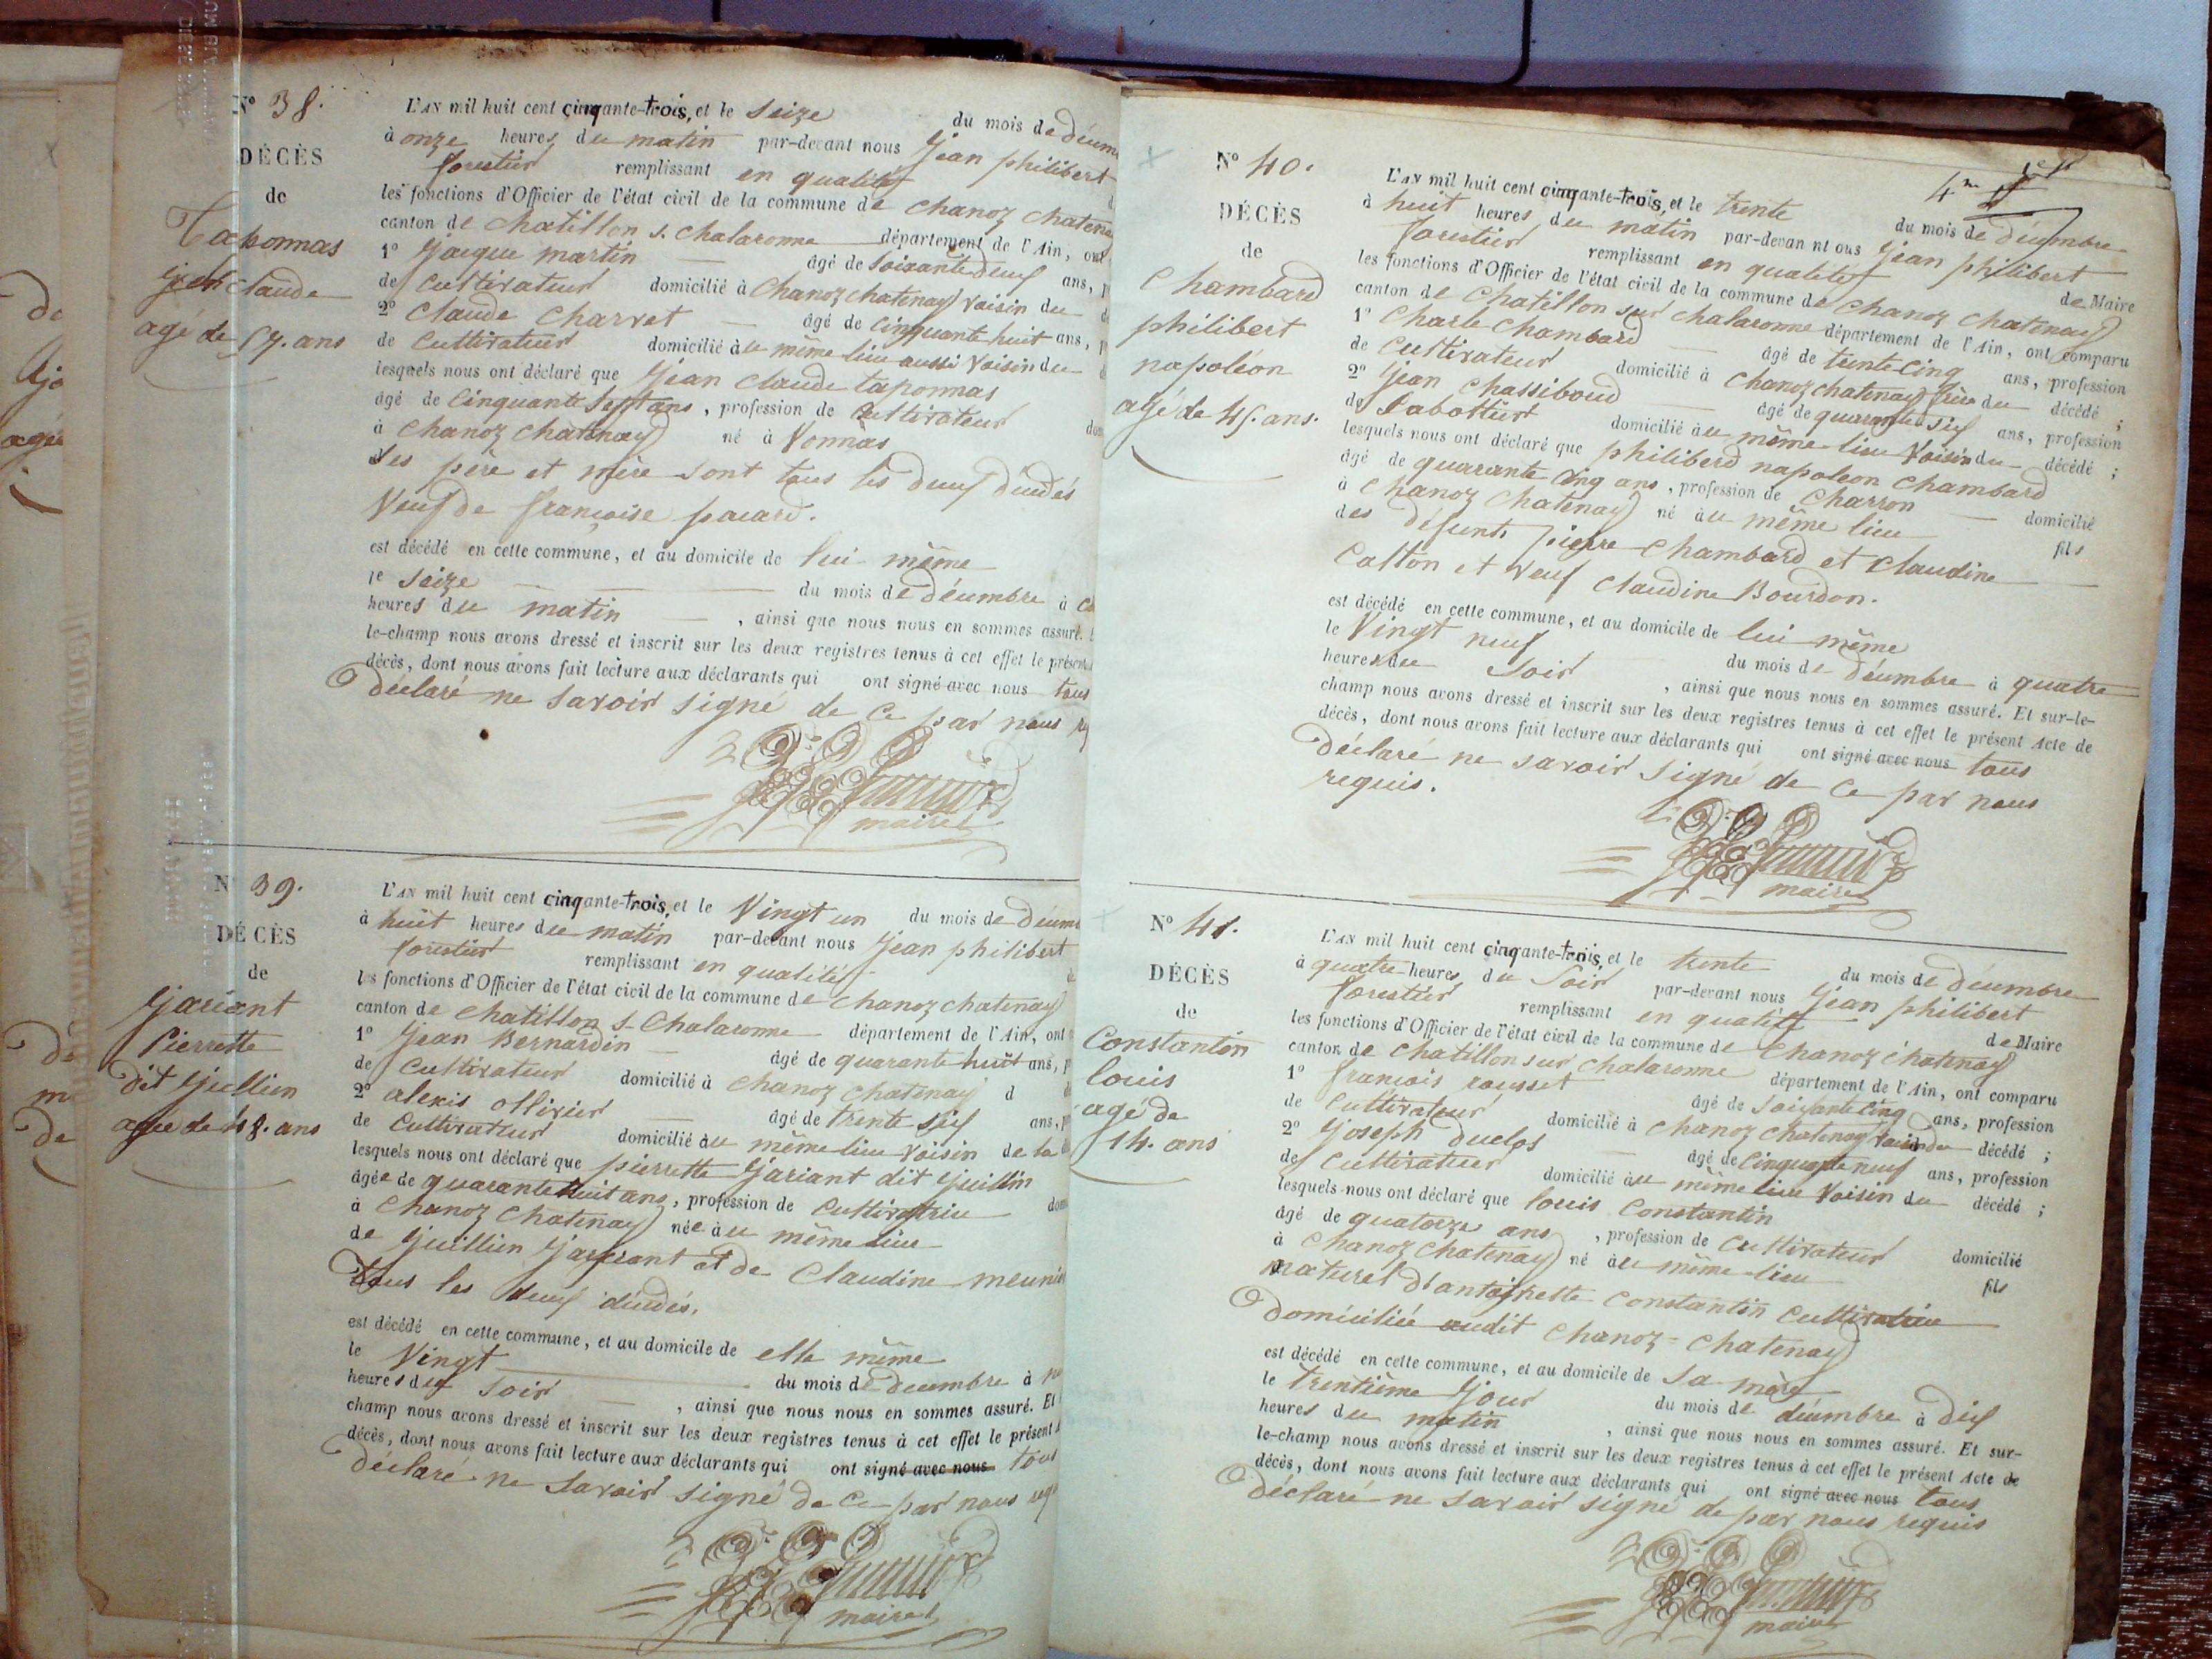 N° 38.
DÉCÈS
de
Taponnas
Jean Claude
agé de 57. ans
L'AN mil huit cent cinqante-trois, et le Seize du mois de décem
à onze heures du matin par-devant nous Jean philibert
forestier remplissant en qualité
les fonctions d'Officier de l'état civil de la commune de Chanoz Chatena
canton de Chatillon s. Chalaronne département de l'Ain, ont
1° Jacque martin âgé de Soixante deux ans,
de Cultivateur domicilié à Chanoz chatenay voisin du
2° Claude Charvet âgé de cinquante huit ans,
de Cultivateur domicilié àu même lieu aussi voisin du
lesquels nous ont déclaré que Jean Claude taponnas
âgé de Cinquante Sept ans, profession de Cultivateur
à Chanoz Chatenay né à Vonnas
Ses père et mère sont tous les deux décédés
Veuf de françoise pacard.
est décédé en cette commune, et au domicile de lui-même
le seize du mois de décembre à
heures du matin, ainsi que nous nous en sommes assuré.
le-champ nous avons dressé et inscrit sur les deux registres tenus à cet effet le présent
décès, dont nous avons fait lecture aux déclarants qui ont signé avec nous tous
déclaré ne savoir signé de ce par nous
maire
N° 39.
DÉCÈS
de
Gariant
Pierrette
dit Guillien
agée de 48. ans
L'AN mil huit cent cinqante-trois, et le Vingt un du mois de décem
à huit heures du matin par-devant nous Jean philibert
forestier remplissant en qualité
les fonctions d'Officier de l'état civil de la commune de Chanoz chatenay
canton de Chatillon s. Chalaronne département de l'Ain, ont
1° Jean Bernardin âgé de quarante huit ans,
de Cultivateur domicilié à Chanoz Chatenay d
2° alexis ollivier âgé de trente six ans,
de Cultivateur domicilié àu même lieu voisin de la
lesquels nous ont déclaré que pierrette Gariant dit Guillin
âgée de quarante huit ans, profession de Cultivatrice
à Chanoz Chatenay née àu même lieu
de Guillien et de Claudine meunier
Tous les deux décédés.
est décédé en cette commune, et au domicile de elle même
le Vingt du mois de decembre à
heures du soir, ainsi que nous nous en sommes assuré. Et
champ nous avons dressé et inscrit sur les deux registres tenus à cet effet le présent
décès, dont nous avons fait lecture aux déclarants qui ont signé avec nous tous
déclaré ne savoir signé de ce par nous
maire
N° 40.
DÉCÈS
de
Chambard
philibert
napoléon
agé de 45. ans.
L'AN mil huit cent cinqante-trois, et le trente du mois de décembre
à huit heures du matin par-devan nt ous Jean philibert
forestier remplissant en qualité de Maire
les fonctions d'Officier de l'état civil de la commune de Chanoz chatenay
canton de Chatillon sur chalaronne département de l'Ain, ont comparu
1° Charle Chambard âgé de trente Cinq ans, profession
de Cultivateur domicilié à Chanoz chatenay frère du décédé ;
2° Jean Chassiboud âgé de quarante six ans, profession
de Sabottier domicilié àu même lieu Voisin du décédé ;
lesquels nous ont déclaré que philiberd napoleon Chambard
âgé de quarante Cinq ans, profession de Charron domicilié
à Chanoz Chatenay né àu même lieu fils
des défunts pierre Chambard et Claudine
Catton et veuf Claudine Bourdon.
est décédé en cette commune, et au domicile de lui même
le Vingt neuf du mois de décembre à quatre
heures du Soir, ainsi que nous nous en sommes assuré. Et sur-le-
champ nous avons dressé et inscrit sur les deux registres tenus à cet effet le présent Acte de
décès, dont nous avons fait lecture aux déclarants qui ont signé avec nous tous
déclaré ne savoir signé de ce par nous
requis.
maire
N° 41.
DÉCÈS
de
Constantin
louis
agé de
14. ans
L'AN mil huit cent cinqante-trois, et le trente du mois de décembre
à quatre heures du Soir par-devant nous Jean philibert
forestier remplissant en qualité de Maire
les fonctions d'Officier de l'état civil de la commune de Chanoz chatenay
canton de Chatillon sur chalaronne département de l'Ain, ont comparu
1° francois rousset âgé de soixante Cinq ans, profession
de Cultivateur domicilié à Chanoz Chatenay voisin du décédé ;
2° Joseph duclos âgé de Cinquante neuf ans, profession
de Cultivateur domicilié àu même lieu Voisin du décédé ;
lesquels nous ont déclaré que louis Constantin
âgé de quatorze ans, profession de Cultivateur domicilié
à Chanoz Chatenay né àu même lieu fils
naturel d'antoinette Constantin Cultivatrice
Domiciliée audit Chanoz-Chatenay
est décédé en cette commune, et au domicile de Sa mère
le trentième Jour du mois de décembre à dix
heures du matin, ainsi que nous nous en sommes assuré. Et sur-
le-champ nous avons dressé et inscrit sur les deux registres tenus à cet effet le présent Acte de
décès, dont nous avons fait lecture aux déclarants qui ont signé avec nous tous
déclaré ne savoir signé de par nous requis
maire